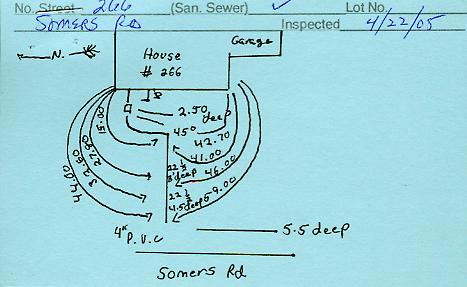 No. Street 266 (San. Sewer) ✓ Lot No.
Somers Rd Inspected 4/22/05
N.
Garage
House
# 266
2.50
deep
45°
15.00
42.70
41.00
27.80
22 1/2
3' deep
46.00
32.60
22 1/2
4.5 deep
59.00
44.00
4" P.V.C
5.5 deep
Somers Rd